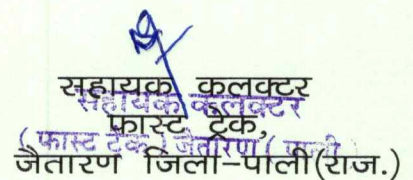 सहायक कलक्टर
सहायक कलक्टर
फास्ट ट्रेक,
( फास्ट ट्रेक ) जैतारण ( पाली
जैतारण जिला-पाली(राज.)